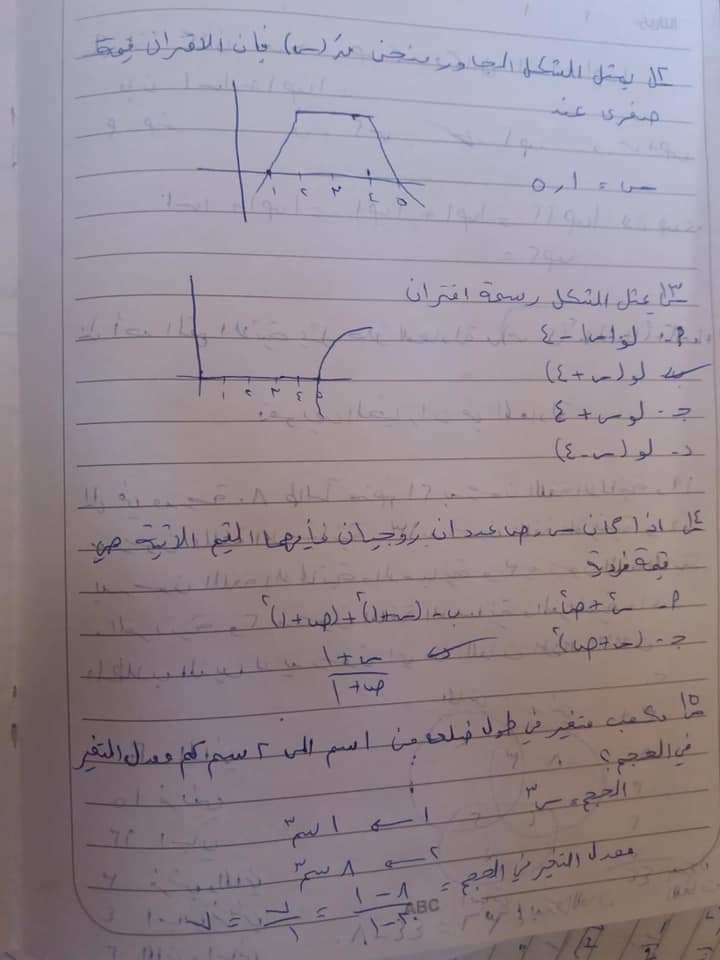 ١٢ يمثل الشكل المجاور منحنى قَ(س) فإن للاقتران قيمة
صغرى عند
س = ١ ، ٥
١ ٢ ٣ ٤ ٥
١٣ يمثل الشكل رسمة اقتران
أ- لو س - ٤
ب- لو (س + ٤)
ج- لو س + ٤
د- لو (س - ٤)
١ ٢ ٣ ٤ ٥
١٤ اذا كان س ، ص عددان زوجيان فأيهما القيم الآتية هي
قيمة فردية
أ- س٢ + ص٢ ب- (س+١)٢ + (ص+١)٢
ج- (س+ص)٢ د- س+١ / ص+١
١٥ مكعب متغير في طول ضلعه من ١سم الى ٢ سم، كم معدل التغير
في الحجم؟
الحجم = س٣
١ ← ١ سم٣
٢ ← ٨ سم٣
معدل التغير في الحجم = ٨ - ١ / ٢ - ١ = ٧ / ١ = ٧
ABC